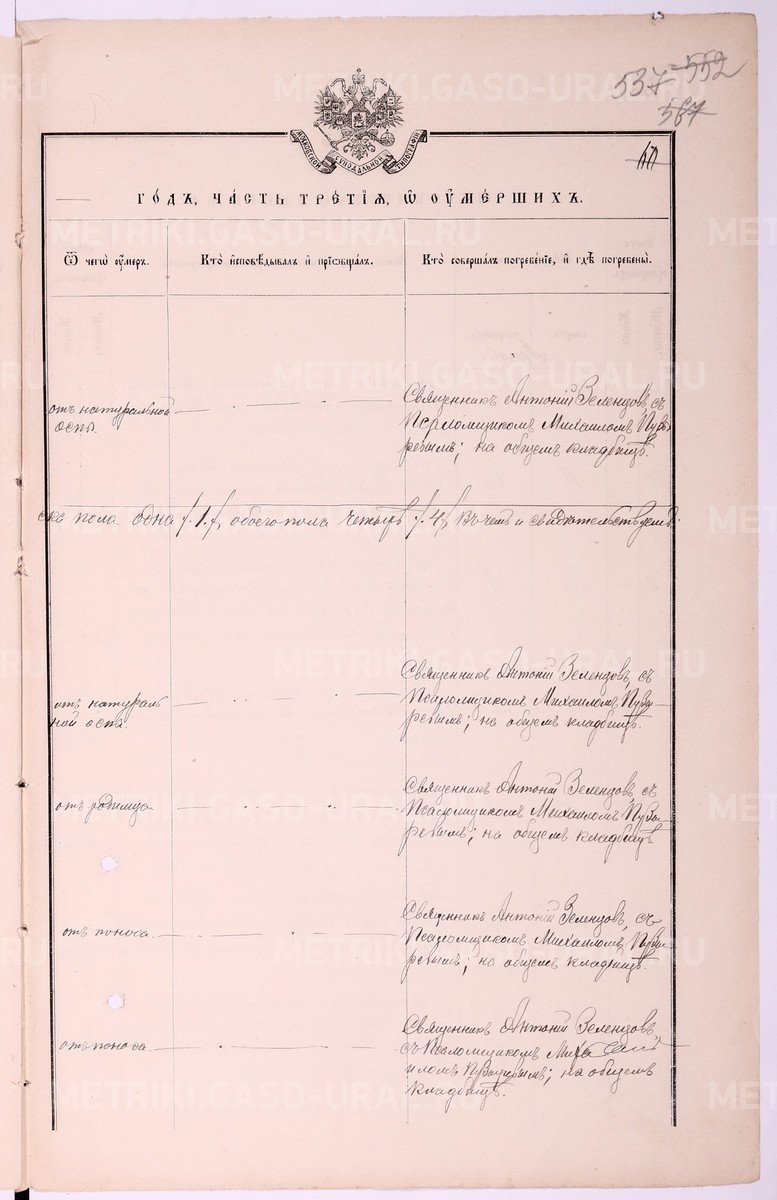 537 552
567
МОСКОВСКОЙ СѴНОДАЛЬНОЙ ТИПОГРАФІИ
60
ГО́ДЪ, ЧА́СТЬ ТРЕ́ТІѦ, Ѽ ОУМЕ́РШИХЪ.
Ѿ чегѡ̀ оу́меръ.
Кто̀ и҆сповѣ́дывалъ и҆ прїѡбща́лъ.
Кто̀ соверша́лъ погребе́нїе, и҆ гдѣ̀ погребены̀.
отъ натуральной
оспы.
Священникъ Антоній Зеленцовъ, съ
Псаломщикомъ Михаиломъ
на общемъ кладбищѣ.
ска пола одна /.1./, обоего пола четыре /.4./, Въ чемъ и свидѣтельствуемъ:
отъ натураль
ной оспы.
Священникъ Антоній Зеленцовъ, съ
Псаломщикомъ Михаиломъ
на общемъ кладбищѣ.
отъ родимца
Священникъ Антоній Зеленцовъ съ
Псаломщикомъ Михаиломъ
на общемъ кладбищѣ.
отъ поноса.
Священникъ Антоній Зеленцовъ, съ
Псаломщикомъ Михаиломъ
на общемъ кладбищѣ.
отъ поноса.
Священникъ Антоній Зеленцовъ,
съ Псаломщикомъ Миха
иломъ на общемъ
кладбищѣ.
METRIKI.GASO-URAL.RU